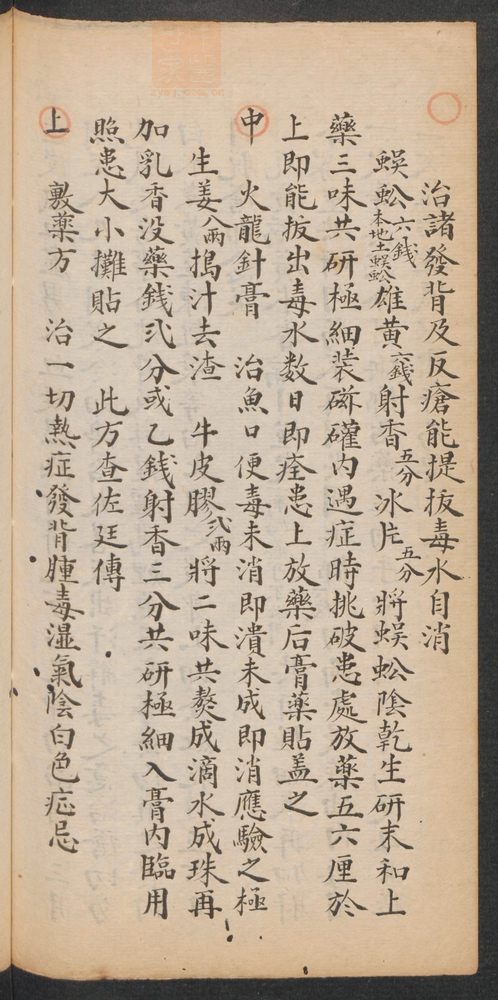 治諸發背及反瘡能提拔毒水自消
蜈蚣六錢本地土蜈蚣雄黃六錢射香五分冰片五分將蜈蚣陰乾生研末和上
藥三味共研極細装磁礶内遇症時挑破患處放藥五六厘於
上即能拔出毒水数日即痊患上放藥后膏藥貼盖之
中 火龍針膏 治魚口便毒未消即潰未成即消應驗之極
生姜八兩搗汁去渣 牛皮膠弍兩將二味共熬成滴水成珠再
加乳香没藥錢弍分或乙錢射香三分共研極細入膏内臨用
照患大小攤貼之 此方查佐廷傳
上 敷藥方 治一切熱症發背腫毒湿氣陰白色症忌